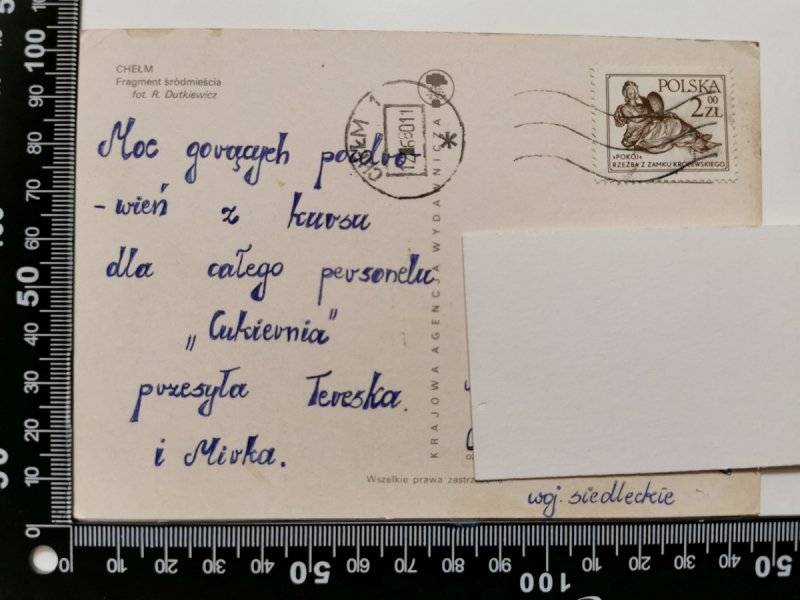 CHEŁM
Fragment śródmieścia
fot. R. Dutkiewicz
Moc gorących pozdro
-wień z kursu
dla całego personelu
„Cukiernia”
przesyła Tereska.
i Mirka.
CHEŁM 1
KRAJOWA AGENCJA WYDAWNICZA
POLSKA
2 00 ZŁ
»POKÓJ«
RZEŹBA Z ZAMKU KRÓLEWSKIEGO
Wszelkie prawa
woj. siedleckie
100
90
80
70
60
50
40
30
20
10
0
0
10
20
30
40
50
60
70
80
90
100
10
20
30
40